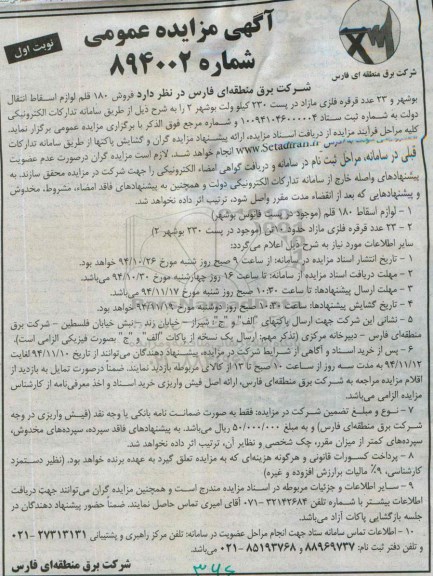 آگهی مزایده عمومی
شماره ۸۹۴۰۰۲
نوبت اول
شرکت برق منطقه ای فارس
شرکت برق منطقه‌ای فارس در نظر دارد فروش ۱۸۰ قلم لوازم اسقاط انتقال
بوشهر و ۲۳ عدد قرقره فلزی مازاد در پست ۲۳۰ کیلو ولت بوشهر ۲ را به شرح ذیل از طریق سامانه تدارکات الکترونیکی
دولت به شماره ثبت ستاد ۱۰۰۹۴۱۰۴۶۰۰۰۰۴ و شماره مرجع فوق الذکر با برگزاری مزایده عمومی برگزار نماید.
کلیه مراحل فرآیند مزایده از دریافت اسناد مزایده، ارائه پیشنهاد مزایده گران و گشایش پاکتها از طریق سامانه تدارکات
www.Setadiran.ir انجام خواهد شد. لازم است مزایده گران درصورت عدم عضویت
قبلی در سامانه، مراحل ثبت نام در سامانه و دریافت گواهی امضاء الکترونیکی را جهت شرکت در مزایده محقق سازند. به
پیشنهادهای واصله خارج از سامانه تدارکات الکترونیکی دولت و همچنین به پیشنهادهای فاقد امضاء، مشروط، مخدوش
و پیشنهادهایی که بعد از انقضاء مدت مقرر واصل شود، ترتیب اثر داده نخواهد شد.
۱ - لوازم اسقاط ۱۸۰ قلم (موجود در پست فانوس بوشهر)
۲ - ۲۳ عدد قرقره فلزی مازاد حدود ۱۰ تن (موجود در پست ۲۳۰ بوشهر ۲)
سایر اطلاعات مورد نیاز به شرح ذیل اعلام می‌گردد:
۱ - تاریخ انتشار اسناد مزایده در سامانه: از ساعت ۹ صبح روز شنبه مورخ ۹۴/۱۰/۲۶ خواهد بود.
۲ - مهلت دریافت اسناد مزایده از سامانه: تا ساعت ۱۶ روز چهارشنبه مورخ ۹۴/۱۰/۳۰ می‌باشد.
۳ - مهلت ارسال پیشنهادها: تا ساعت ۱۰:۳۰ صبح روز شنبه مورخ ۹۴/۱۱/۱۷ می‌باشد.
۴ - تاریخ گشایش پیشنهادها: ساعت ۱۰:۳۰ صبح روز دوشنبه مورخ ۹۴/۱۱/۱۹ خواهد بود.
۵ - نشانی این شرکت جهت ارسال پاکتهای "الف" و "ج": شیراز – خیابان زند – نبش خیابان فلسطین – شرکت برق
منطقه‌ای فارس – دبیرخانه مرکزی (تذکر مهم: ارسال یک نسخه از پاکات "الف" و "ج" بصورت فیزیکی الزامی است).
۶ - پس از خرید اسناد و آگاهی از شرایط شرکت در مزایده، پیشنهاد دهندگان می‌توانند از تاریخ ۹۴/۱۱/۱۰ لغایت
۹۴/۱۱/۱۲ به مدت سه روز از ساعت ۱۰ صبح تا ۱۳ از کالای مربوطه بازدید نمایند. ضمناً درصورت تمایل به بازدید از
اقلام مزایده مراجعه به شرکت برق منطقه‌ای فارس، ارائه اصل فیش واریزی خرید اسناد و اخذ معرفی‌نامه از کارشناس
مزایده الزامی می‌باشد.
۷ - نوع و مبلغ تضمین شرکت در مزایده: فقط به صورت ضمانت نامه بانکی یا وجه نقد (فیش واریزی در وجه
شرکت برق منطقه‌ای فارس) و به مبلغ ۵۰/۰۰۰/۰۰۰ ریال می‌باشد. به پیشنهادهای فاقد سپرده، سپرده‌های مخدوش،
سپرده‌های کمتر از میزان مقرر، چک شخصی و نظایر آن، ترتیب اثر داده نخواهد شد.
۸ - پرداخت کسورات قانونی و هرگونه هزینه‌ای که به مزایده تعلق گیرد به عهده برنده خواهد بود. (نظیر دستمزد
کارشناسی، ۹٪ مالیات برارزش افزوده و غیره)
۹ - سایر اطلاعات و جزئیات مربوطه در اسناد مزایده مندرج است و همچنین مزایده گران می‌توانند جهت دریافت
اطلاعات بیشتر با شماره تلفن ۳۲۱۴۲۶۸۴-۰۷۱ آقای امیری تماس حاصل نمایند. ضمناً حضور پیشنهاد دهندگان در
جلسه بازگشایی پاکات آزاد می‌باشد.
۱۰ - اطلاعات تماس سامانه ستاد جهت انجام مراحل عضویت در سامانه: تلفن مرکز راهبری و پشتیبانی ۲۷۳۱۳۱۳۱-۰۲۱
و تلفن دفتر ثبت نام: ۸۸۹۶۹۷۳۷ و ۸۵۱۹۳۷۶۸-۰۲۱ می‌باشد.
شرکت برق منطقه‌ای فارس